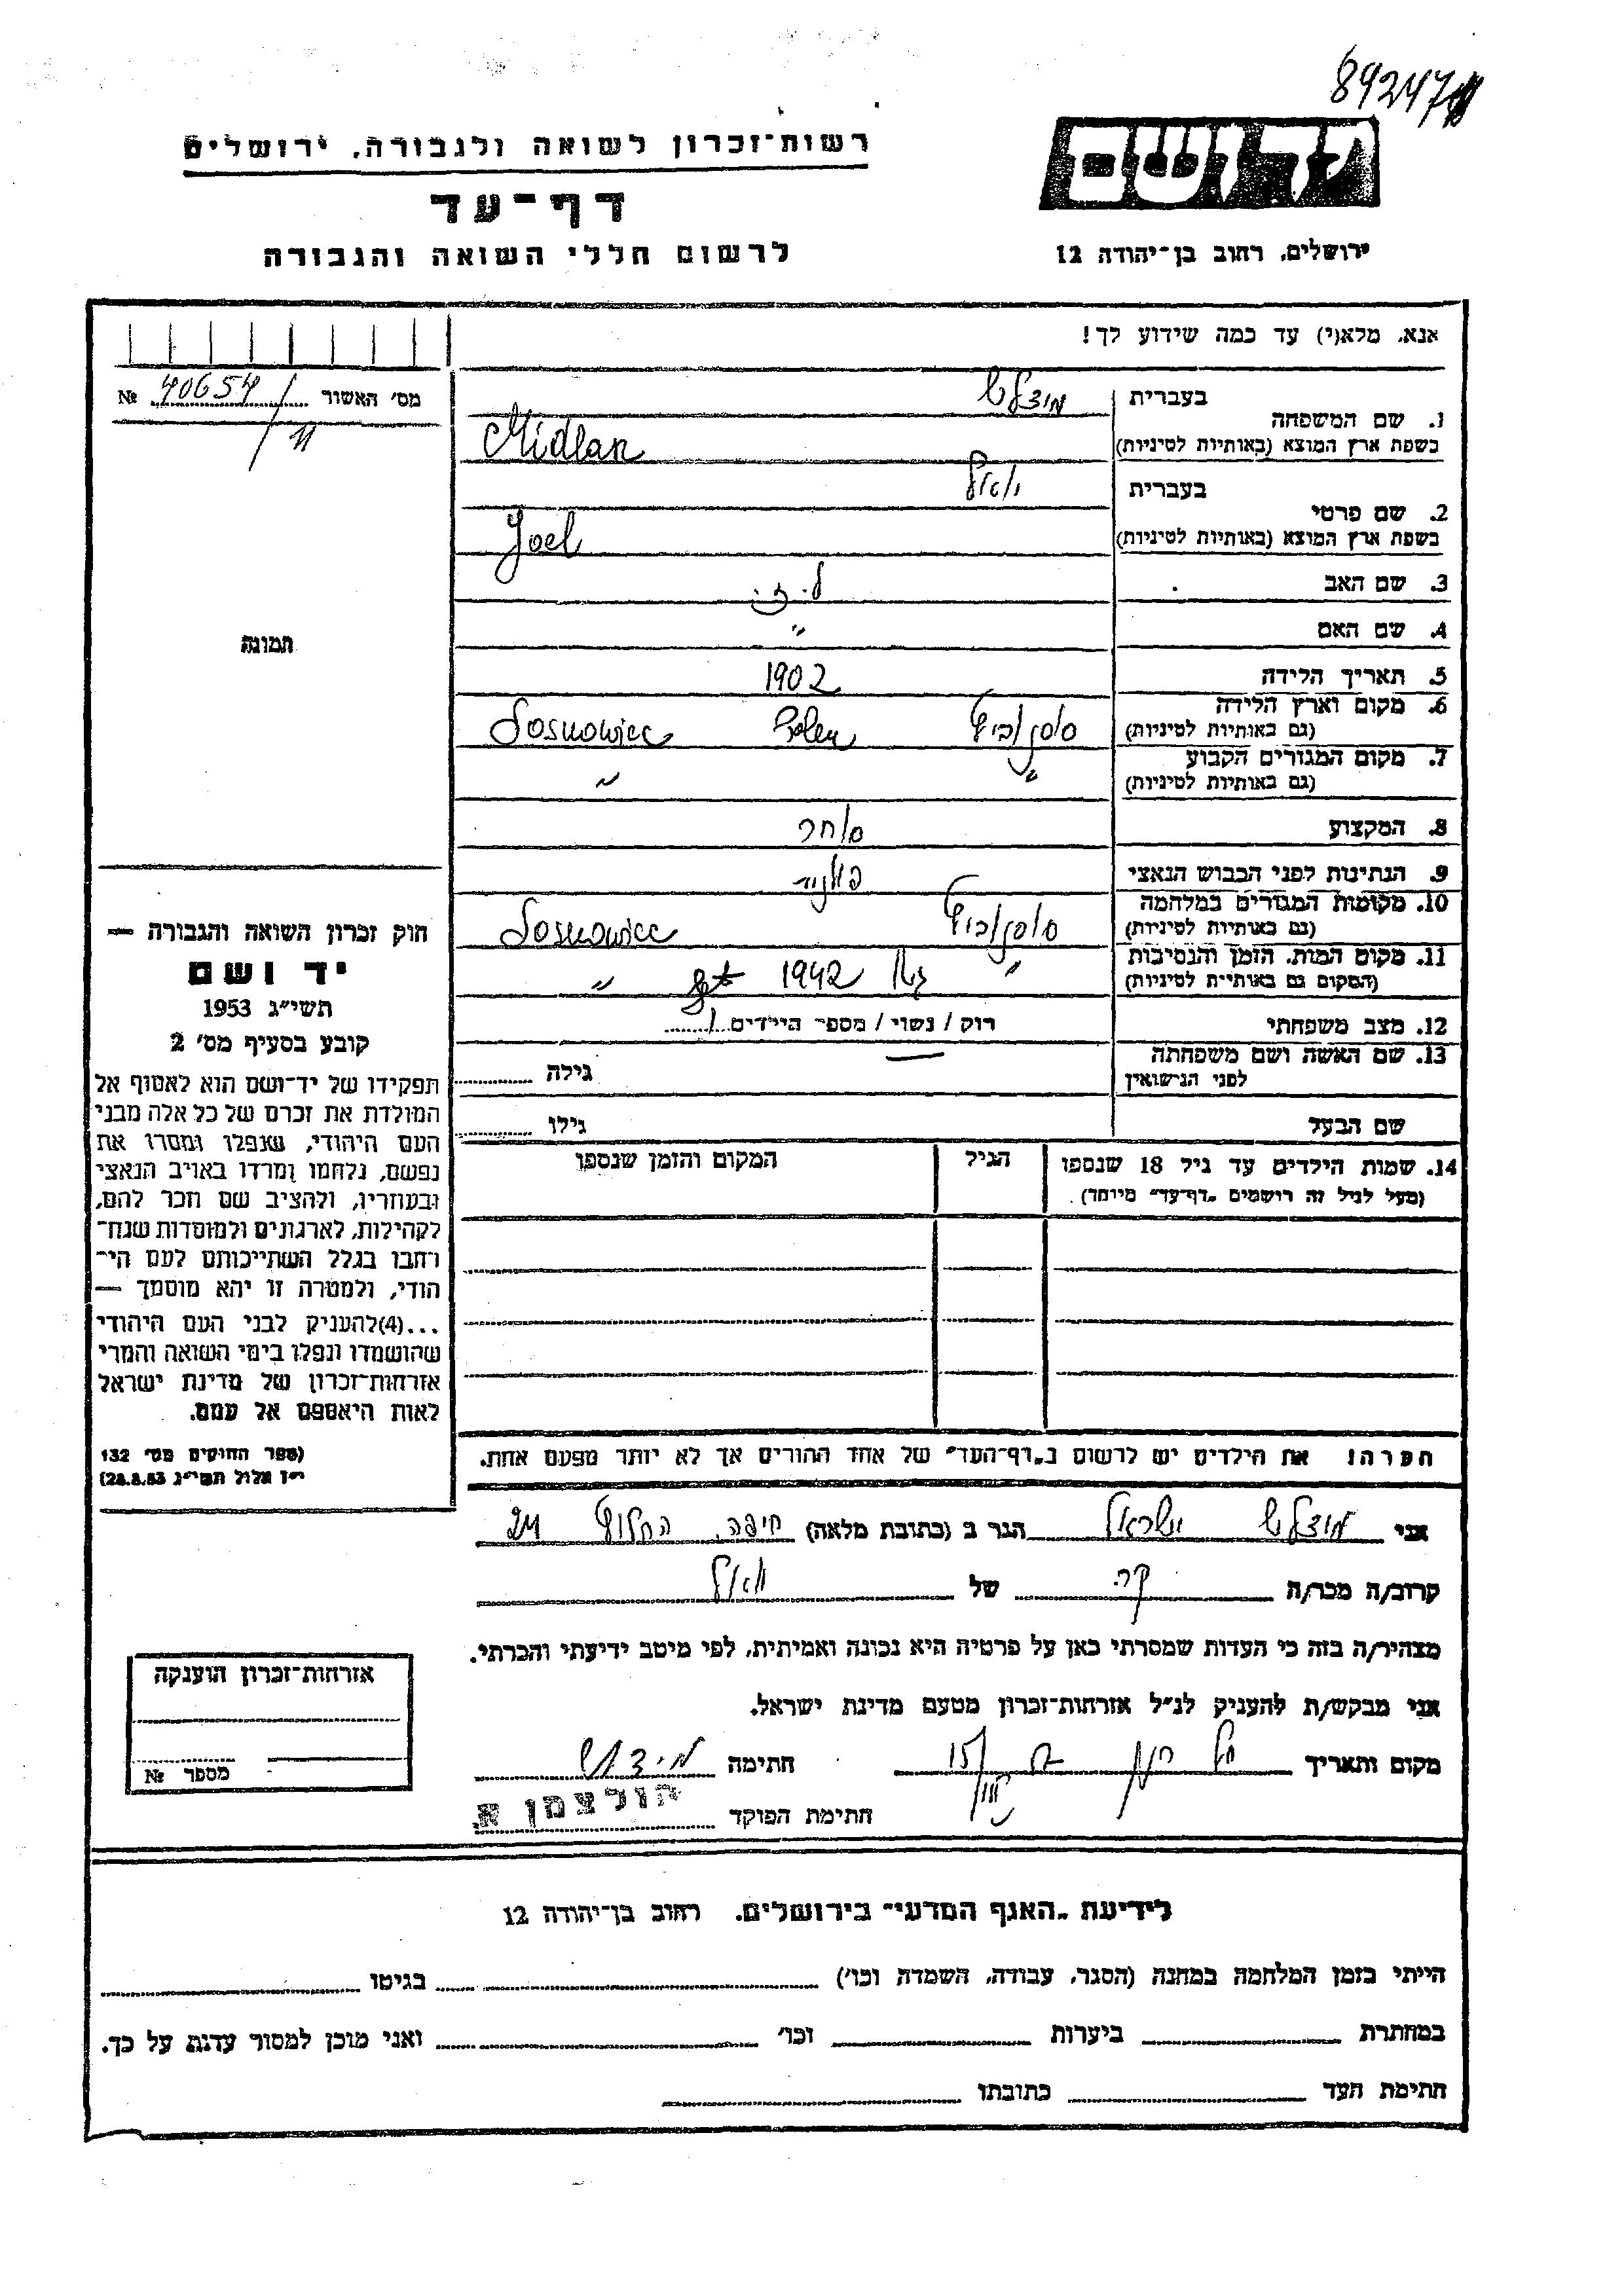 89247
רשות־זכרון לשואה ולגבורה, ירושלים
יד ושם
דף־עד
לרשום חללי השואה והגבורה
ירושלים, רחוב בן־יהודה 12
אנא, מלא(י) עד כמה שידוע לך!
מס' האשור 40654 №
11
1. שם המשפחה
בעברית
בשפת ארץ המוצא (באותיות לטיניות) Midlar
2. שם פרטי
בעברית יואל
בשפת ארץ המוצא (באותיות לטיניות) Joel
3. שם האב
4. שם האם "
5. תאריך הלידה 1902
6. מקום וארץ הלידה
(גם באותיות לטיניות) סוסנוביץ Polen Sosnowiec
7. מקום המגורים הקבוע
(גם באותיות לטיניות) " "
8. המקצוע סוחר
9. הנתינות לפני הכבוש הנאצי
10. מקומות המגורים במלחמה
(גם באותיות לטיניות) סוסנוביץ Sosnowiec
11. מקום המות, הזמן והנסיבות
(המקום גם באותיות לטיניות) " 1942 "
12. מצב משפחתי רוק / נשוי / מספר הילדים
13. שם האשה ושם משפחתה
לפני הנישואין גילה
שם הבעל גילו
14. שמות הילדים עד גיל 18 שנספו
(מעל לגיל זה רושמים "דף־עד" מיוחד)
הגיל
המקום והזמן שנספו
הערה! את הילדים יש לרשום ב"דף־העד" של אחד ההורים אך לא יותר מפעם אחת.
תמונה
חוק זכרון השואה והגבורה —
יד ושם
תשי"ג 1953
קובע בסעיף מס' 2
תפקידו של יד־ושם הוא לאסוף אל
המולדת את זכרם של כל אלה מבני
העם היהודי, שנפלו ומסרו את
נפשם, נלחמו ומרדו באויב הנאצי
ובעוזריו, ולהציב שם וזכר להם,
לקהילות, לארגונים ולמוסדות שנח־
רבו בגלל השתייכותם לעם הי־
הודי, ולמטרה זו יהא מוסמך —
...(4)להעניק לבני העם היהודי
שהושמדו ונפלו בימי השואה והמרי
אזרחות־זכרון של מדינת ישראל
לאות היאספם אל עמם.
(ספר החוקים מס' 132
י"ז אלול תשי"ג 28.8.53)
אני ישראל הגר ב (כתובת מלאה) חיפה, החלוץ 24
קרוב/ה מכר/ה של יואל
מצהיר/ה בזה כי העדות שמסרתי כאן על פרטיה היא נכונה ואמיתית, לפי מיטב ידיעתי והכרתי.
אני מבקש/ת להעניק לנ"ל אזרחות־זכרון מטעם מדינת ישראל.
מקום ותאריך חתימה
חתימת הפוקד הולצמן א.
אזרחות־זכרון הוענקה
מספר №
לידיעת "האגף המדעי" בירושלים, רחוב בן־יהודה 12
הייתי בזמן המלחמה במחנה (הסגר, עבודה, השמדה וכו') בגיטו
במחתרת ביערות וכו' ואני מוכן למסור עדות על כך.
חתימת העד כתובתו